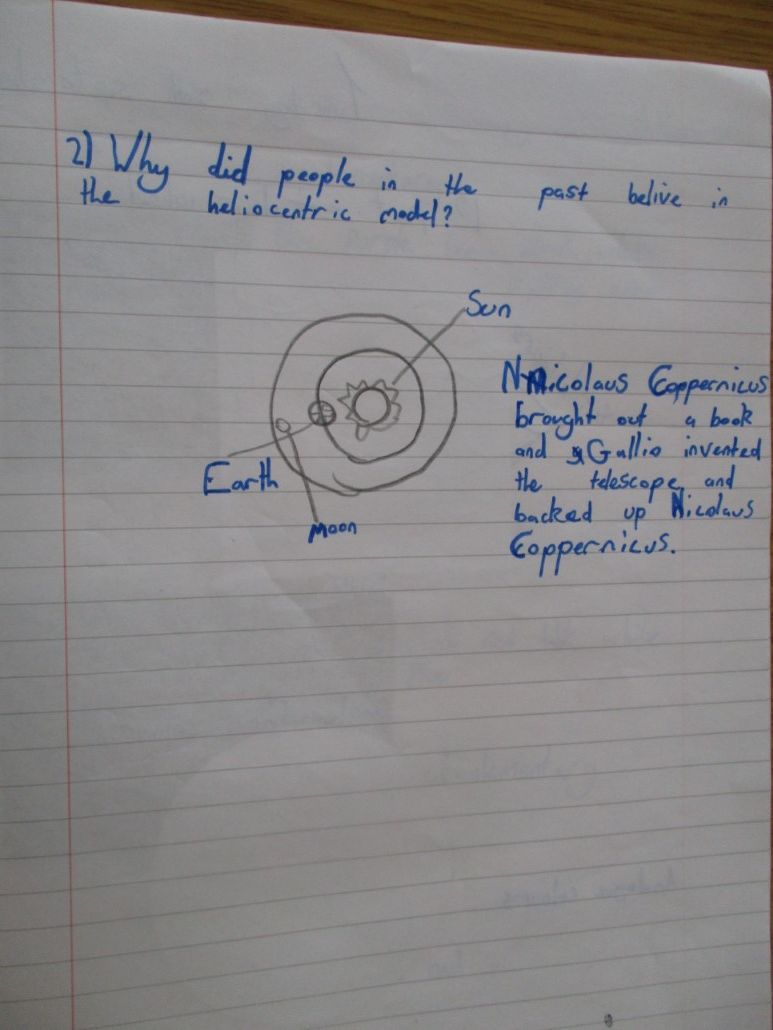 2) Why did people in the past belive in
the heliocentric model?
Sun
Nicolaus Coppernicus
brought out a book
and Gallio invented
the telescope and
backed up Nicolaus
Coppernicus.
Earth
Moon